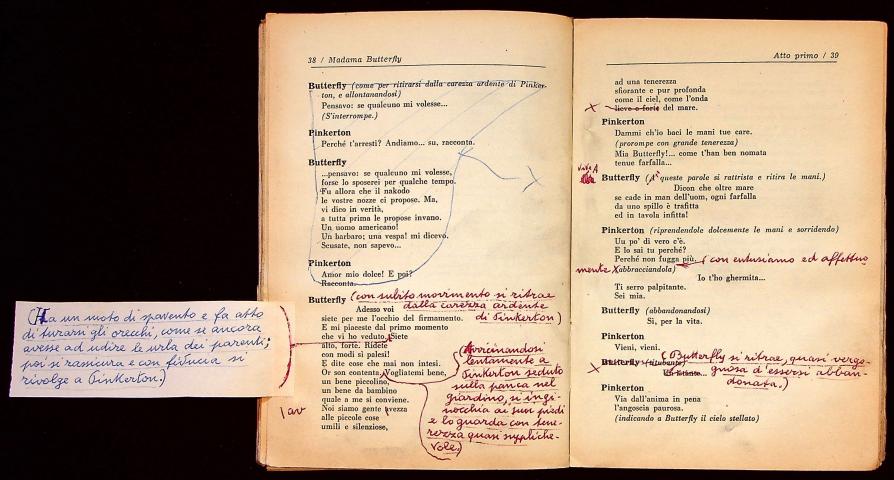 38 / Madama Butterfly
Butterfly (come per ritirarsi dalla carezza ardente di Pinker-
ton, e allontanandosi)
Pensavo: se qualcuno mi volesse...
(S'interrompe.)
Pinkerton
Perché t'arresti? Andiamo... su, racconta.
Butterfly
...pensavo: se qualcuno mi volesse,
forse lo sposerei per qualche tempo.
Fu allora che il nakodo
le vostre nozze ci propose. Ma,
vi dico in verità,
a tutta prima le propose invano.
Un uomo americano!
Un barbaro; una vespa! mi dicevo.
Scusate, non sapevo...
Pinkerton
Amor mio dolce! E poi?
Racconta.
Butterfly (con subito movimento si ritrae
dalla carezza ardente
di Pinkerton)
Adesso voi
siete per me l'occhio del firmamento.
E mi piaceste dal primo momento
che vi ho veduto. Siete
alto, forte. Ridete
con modi sì palesi!
E dite cose che mai non intesi.
Or son contenta. Vogliatemi bene,
un bene piccolino,
un bene da bambino
quale a me si conviene.
Noi siamo gente avvezza
alle piccole cose
umili e silenziose,
(Ha un moto di spavento e fa atto
di turarsi gli orecchi, come se ancora
avesse ad udire le urla dei parenti;
poi si rassicura e con fiducia si
rivolge a Pinkerton.)
/av
(Avvicinandosi
lentamente a
Pinkerton seduto
sulla panca nel
giardino, si ingi-
nocchia ai suoi piedi
e lo guarda con tene-
rezza quasi suppliche-
vole.)
Atto primo / 39
ad una tenerezza
sfiorante e pur profonda
come il ciel, come l'onda
lieve e forte del mare.
Pinkerton
Dammi ch'io baci le mani tue care.
(prorompe con grande tenerezza)
Mia Butterfly!... come t'han ben nomata
tenue farfalla...
Butterfly (A queste parole si rattrista e ritira le mani.)
Dicon che oltre mare
se cade in man dell'uom, ogni farfalla
da uno spillo è trafitta
ed in tavola infitta!
Pinkerton (riprendendole dolcemente le mani e sorridendo)
Un po' di vero c'è.
E lo sai tu perché?
Perché non fugga più. (con entusiasmo ed affettuo
samente abbracciandola)
Io t'ho ghermita...
Ti serro palpitante.
Sei mia.
Butterfly (abbandonandosi)
Sì, per la vita.
Pinkerton
Vieni, vieni.
(Butterfly si ritrae, quasi vergo-
gnosa d'essersi abban-
donata.)
Butterfly (titubante)
Un istante...
Pinkerton
Via dall'anima in pena
l'angoscia paurosa.
(indicando a Butterfly il cielo stellato)